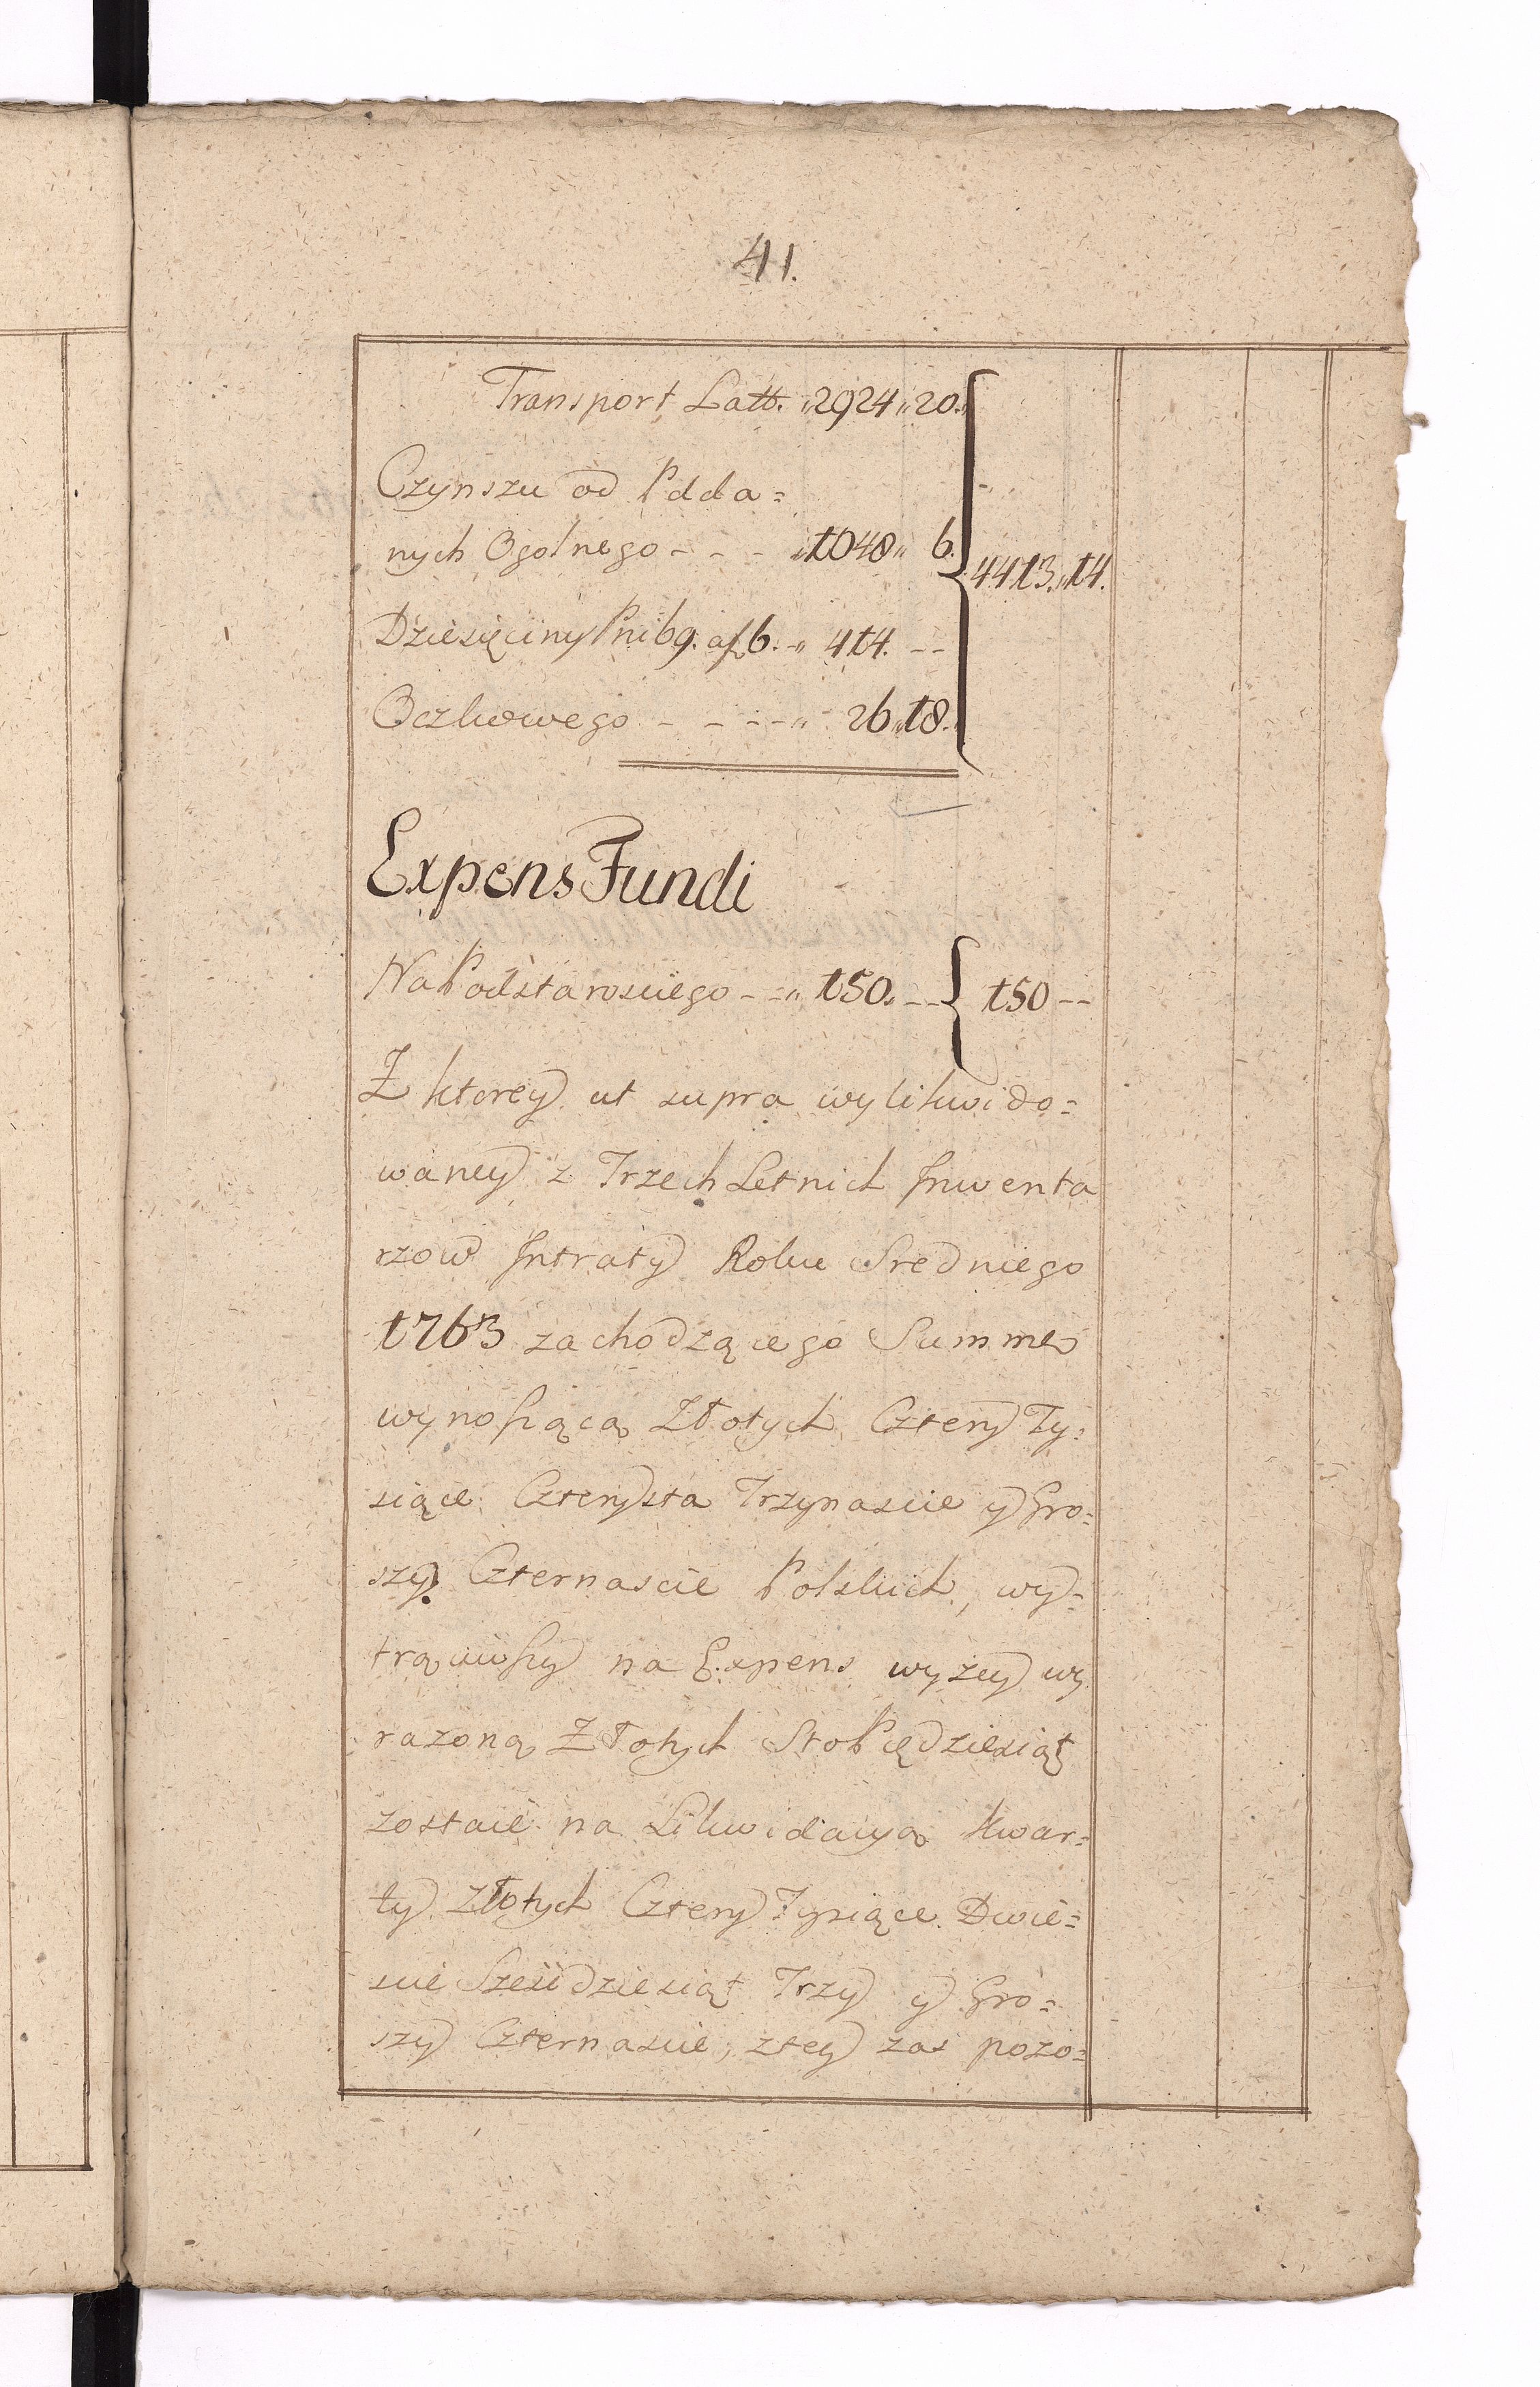 41.
Transport Latt. „2924„20.
Czynszu od Pdda=
nych Ogolnego - - - „1048„ 6.
4413„14.
Dziesięciny Pni 69. a f 6. „ 414. --
Oczkowego - - - - „ 26„18.
Expens Fundi
Na Podstarosciego - -„ 150. -- 150 --
Z ktorey ut supra wylikwido=
waney z Trzech Letnich Inwenta
rzow Intraty Roku Sredniego
1763 zachodzącego Summę
wynoszącą Złotych Cztery Ty=
siące Czterysta Trzynascie y Gro=
szy Czternascie Polskich, wy=
trąciwszy na Expens wyzey wy
razoną Złotych Sto Pięcdziesiąt
zostaie na Likwidacyą Kwar=
ty Złotych Cztery Tysiące Dwie=
scie Szescdziesiąt Trzy y Gro=
szy Czternascie, z tey zas pozo=